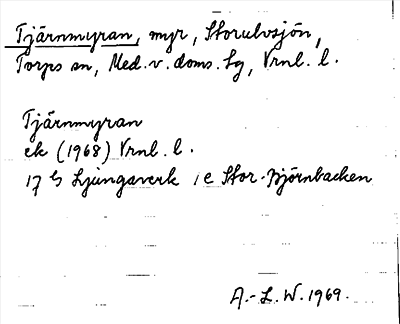 Tjärnmyran, myr, Storulvsjön,
Torps sn, Med. v. doms. sg, Vrnl. l.
Tjärnmyran
ek (1968) Vrnl. l.
17 G Ljungaverk 1 e Stor-Björnbacken
A.-L. W. 1969.